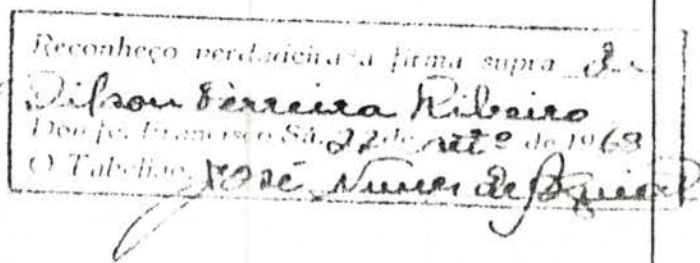 Reconheço verdadeira a firma supra de
Dilson Ferreira Ribeiro
Dou fé. Francisco Sá, 22 de setº de 1969
O Tabelião, José Nunes de